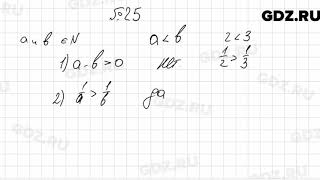 GDZ.RU
№25
a и b ∈ N a < b 2 < 3
1) a - b > 0 нет 1/2 > 1/3
2) 1/a > 1/b да